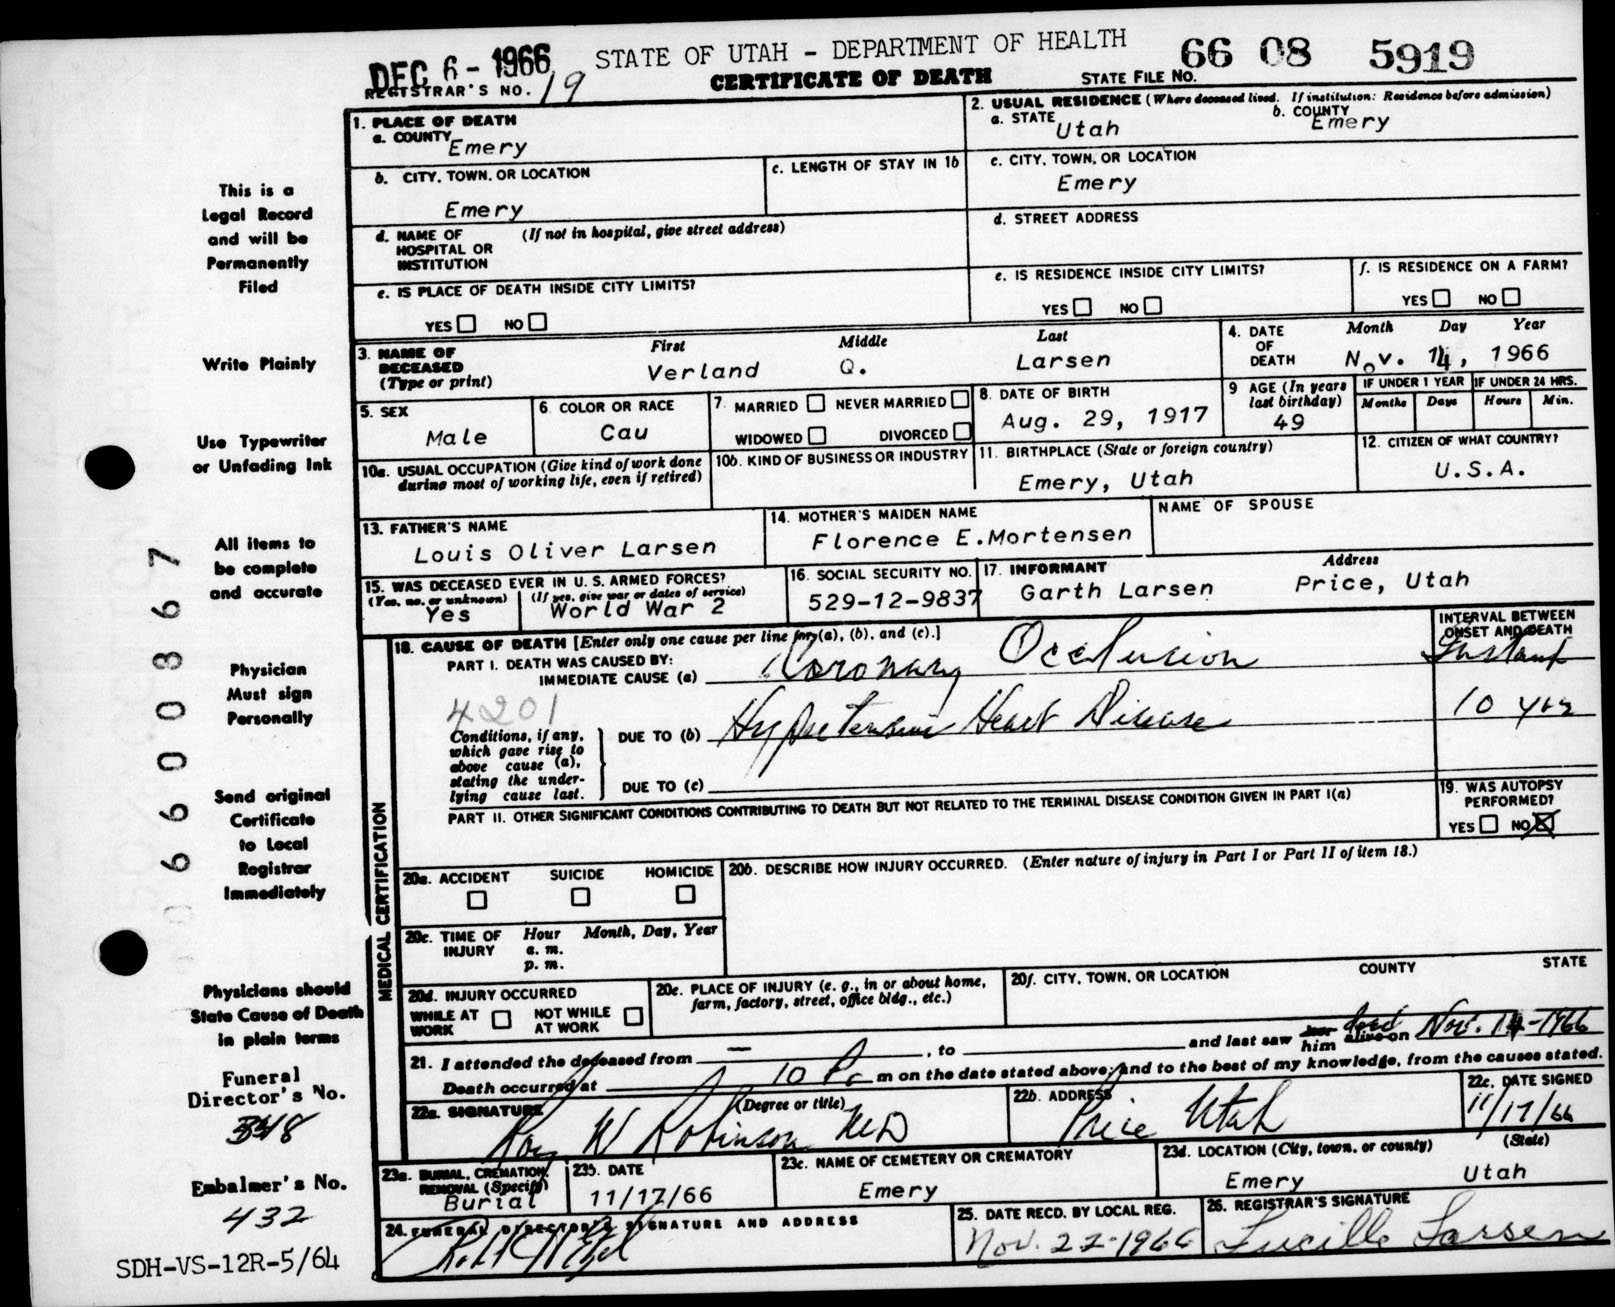 DEC 6 - 1966 STATE OF UTAH - DEPARTMENT OF HEALTH 66 08 5919
REGISTRAR'S NO. 19 CERTIFICATE OF DEATH STATE FILE NO.
1. PLACE OF DEATH
a. COUNTY
Emery
2. USUAL RESIDENCE (Where deceased lived. If institution: Residence before admission)
a. STATE
Utah
b. COUNTY
Emery
b. CITY, TOWN, OR LOCATION
Emery
c. LENGTH OF STAY IN 1b
c. CITY, TOWN, OR LOCATION
Emery
d. NAME OF (If not in hospital, give street address)
HOSPITAL OR
INSTITUTION
d. STREET ADDRESS
e. IS PLACE OF DEATH INSIDE CITY LIMITS?
YES NO
e. IS RESIDENCE INSIDE CITY LIMITS?
YES NO
f. IS RESIDENCE ON A FARM?
YES NO
3. NAME OF
DECEASED
(Type or print)
First Middle Last
Verland Q. Larsen
4. DATE
OF
DEATH
Month Day Year
Nov. 14, 1966
5. SEX
Male
6. COLOR OR RACE
Cau
7. MARRIED NEVER MARRIED
WIDOWED DIVORCED
8. DATE OF BIRTH
Aug. 29, 1917
9 AGE (In years
last birthday)
49
IF UNDER 1 YEAR IF UNDER 24 HRS.
Months Days Hours Min.
10a. USUAL OCCUPATION (Give kind of work done
during most of working life, even if retired)
10b. KIND OF BUSINESS OR INDUSTRY
11. BIRTHPLACE (State or foreign country)
Emery, Utah
12. CITIZEN OF WHAT COUNTRY?
U.S.A.
13. FATHER'S NAME
Louis Oliver Larsen
14. MOTHER'S MAIDEN NAME
Florence E.Mortensen
NAME OF SPOUSE
15. WAS DECEASED EVER IN U. S. ARMED FORCES?
(Yes, no, or unknown) (If yes, give war or dates of service)
Yes World War 2
16. SOCIAL SECURITY NO.
529-12-9837
17. INFORMANT Address
Garth Larsen Price, Utah
MEDICAL CERTIFICATION
18. CAUSE OF DEATH [Enter only one cause per line for (a), (b), and (c).]
INTERVAL BETWEEN
ONSET AND DEATH
PART I. DEATH WAS CAUSED BY:
IMMEDIATE CAUSE (a) Coronary Occlusion Instant
4201
Conditions, if any,
which gave rise to
above cause (a),
stating the under-
lying cause last.
DUE TO (b) Hypertensive Heart Disease 10 yrs
DUE TO (c)
PART II. OTHER SIGNIFICANT CONDITIONS CONTRIBUTING TO DEATH BUT NOT RELATED TO THE TERMINAL DISEASE CONDITION GIVEN IN PART I(a)
19. WAS AUTOPSY
PERFORMED?
YES NO X
20a. ACCIDENT SUICIDE HOMICIDE
20b. DESCRIBE HOW INJURY OCCURRED. (Enter nature of injury in Part I or Part II of item 18.)
20c. TIME OF
INJURY
Hour Month, Day, Year
a. m.
p. m.
20d. INJURY OCCURRED
WHILE AT
WORK
NOT WHILE
AT WORK
20e. PLACE OF INJURY (e. g., in or about home,
farm, factory, street, office bldg., etc.)
20f. CITY, TOWN, OR LOCATION COUNTY STATE
21. I attended the deceased from —, to and last saw her him dead alive on Nov. 14-1966
Death occurred at 10 P. m on the date stated above; and to the best of my knowledge, from the causes stated.
22a. SIGNATURE (Degree or title)
Roy W Robinson MD
22b. ADDRESS
Price Utah
22c. DATE SIGNED
11/17/66
23a. BURIAL, CREMATION,
REMOVAL (Specify)
Burial
23b. DATE
11/17/66
23c. NAME OF CEMETERY OR CREMATORY
Emery
23d. LOCATION (City, town, or county) (State)
Emery Utah
24. FUNERAL DIRECTOR'S SIGNATURE AND ADDRESS
25. DATE RECD. BY LOCAL REG.
Nov. 22-1966
26. REGISTRAR'S SIGNATURE
Lucille Larsen
This is a
Legal Record
and will be
Permanently
Filed
Write Plainly
Use Typewriter
or Unfading Ink
All items to
be complete
and accurate
Physician
Must sign
Personally
Send original
Certificate
to Local
Registrar
Immediately
Physicians should
State Cause of Death
in plain terms
Funeral
Director's No.
Embalmer's No.
432
SDH-VS-12R-5/64